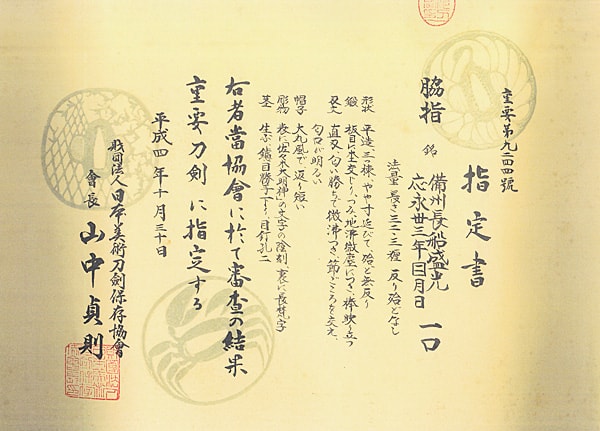 重要第九二四四號
指定書
脇指 銘 備州長船盛光
応永卅三年 月日 一口
法量 長さ三二・三糎 反り殆どなし
形状 平造、三棟、やや寸延びて、殆ど無反り
鍛 板目に杢交じり、つみ、地沸微塵につき、棒映り立つ
刃文 直刃、匂い勝ちで、微沸つき、節ごころを交え、
匂口が明るい
帽子 大丸風で、返り短い
彫物 表に「佐々木大明神」の文字の陰刻、裏に長梵字
茎 生ぶ、鑢目勝手下り、目釘孔二
右者當協會に於て審査の結果
重要刀剣に指定する
平成四年十月三十日
財団法人日本美術刀剣保存協會
會長 山中貞則